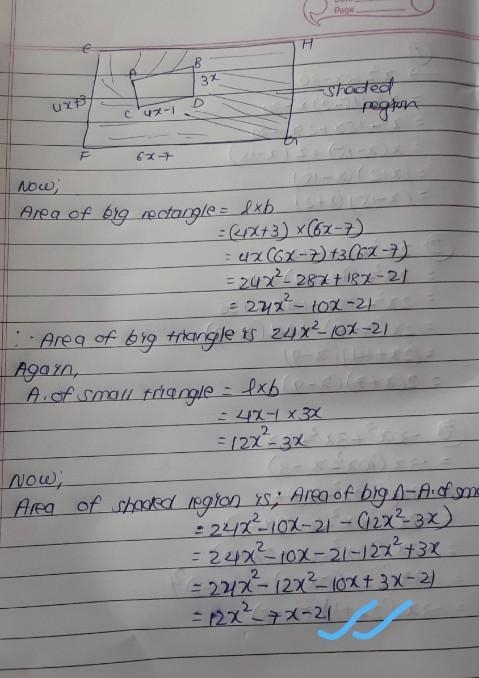 Page
E H
A B
3x
4x+3
shaded
region
C 4x-1 D
F 6x-7 G
Now;
Area of big rectangle = l×b
= (4x+3) × (6x-7)
= 4x(6x-7)+3(6x-7)
= 24x²-28x+18x-21
= 24x²-10x-21
∴ Area of big triangle is 24x²-10x-21
Again,
A. of small triangle = l×b
= 4x-1 × 3x
= 12x²-3x
Now;
Area of shaded region is; Area of big Δ-A. of sma
= 24x²-10x-21-(12x²-3x)
= 24x²-10x-21-12x²+3x
= 24x²-12x²-10x+3x-21
= 12x²-7x-21